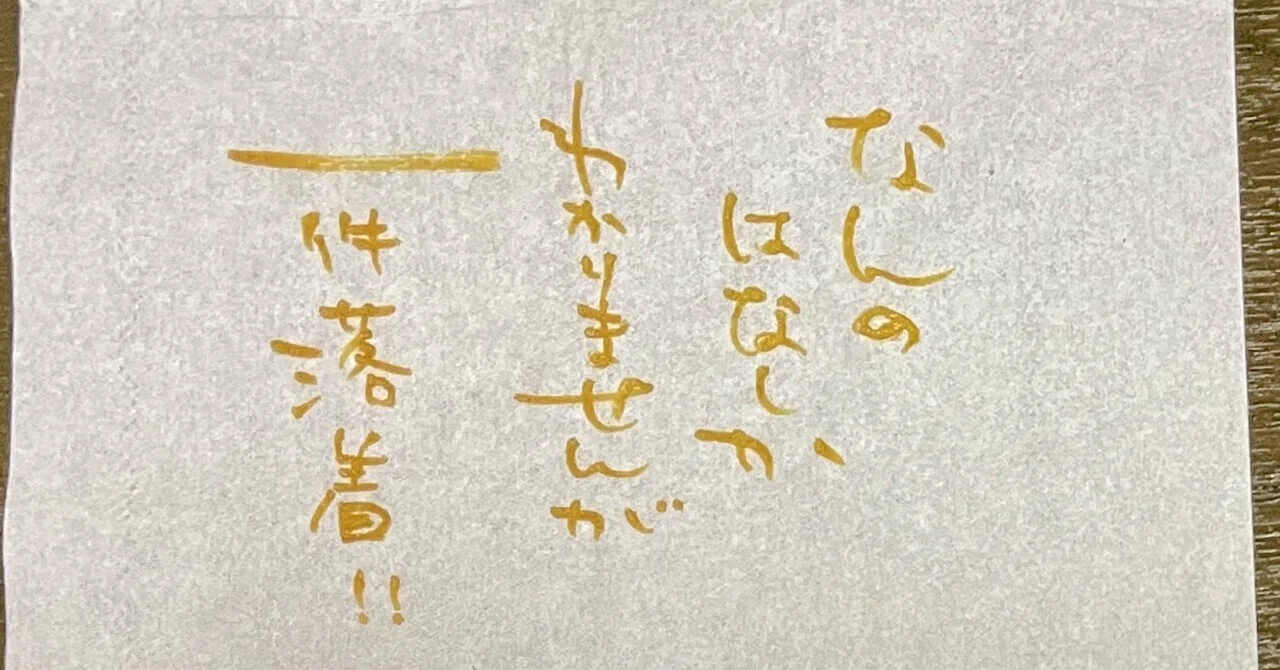 なんの
はなしか
わかりませんが
一件落着!!